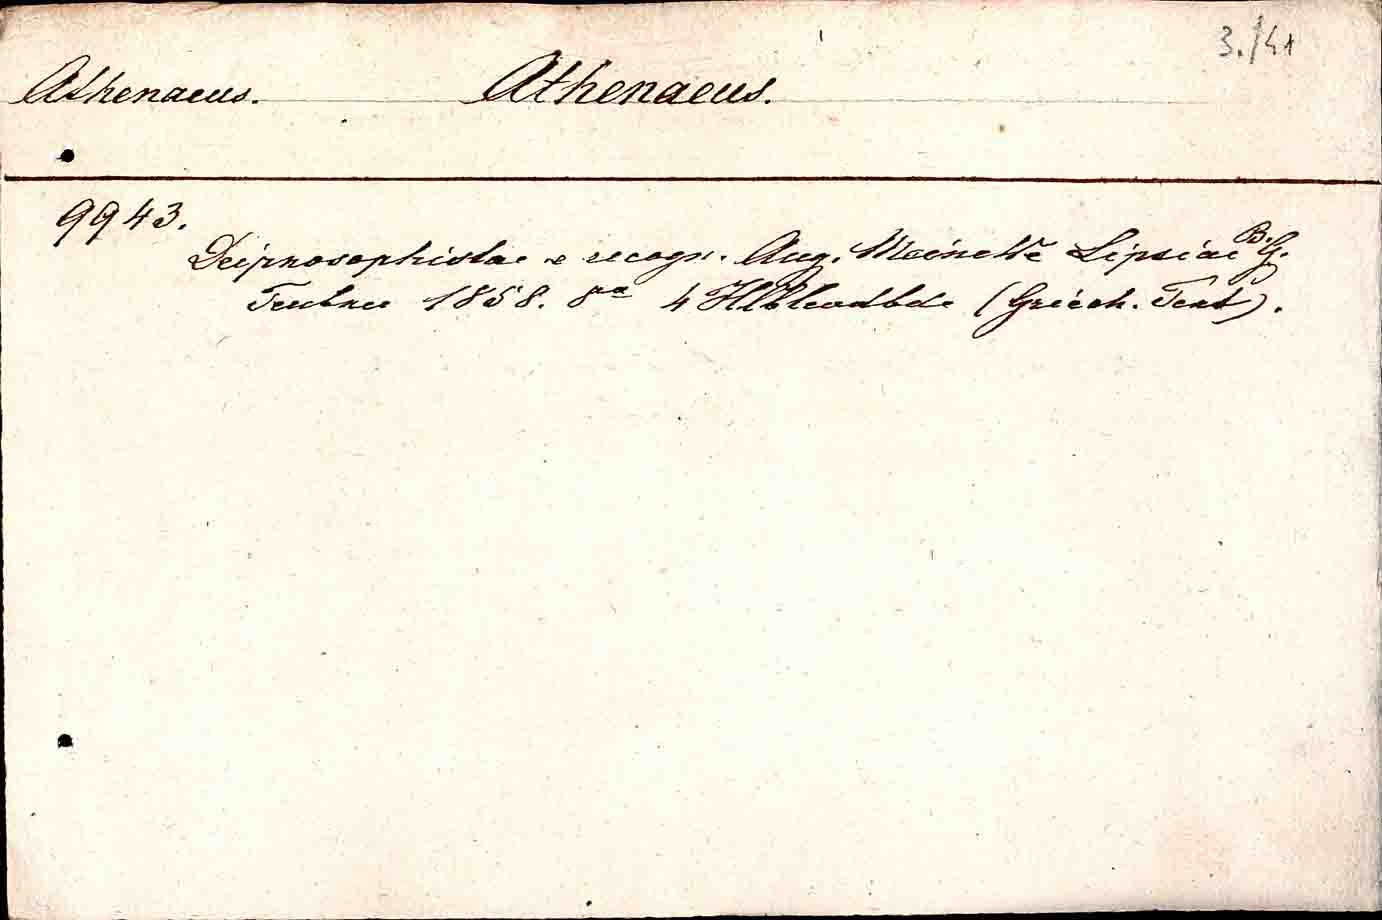 3./41
Athenaeus. Athenaeus.
9943.
Deipnosophistae e recogn. Aug. Meineke Lipsiae B. G.
Teubner 1858. 8va 4 Hlbleodbde (Griech. Text).